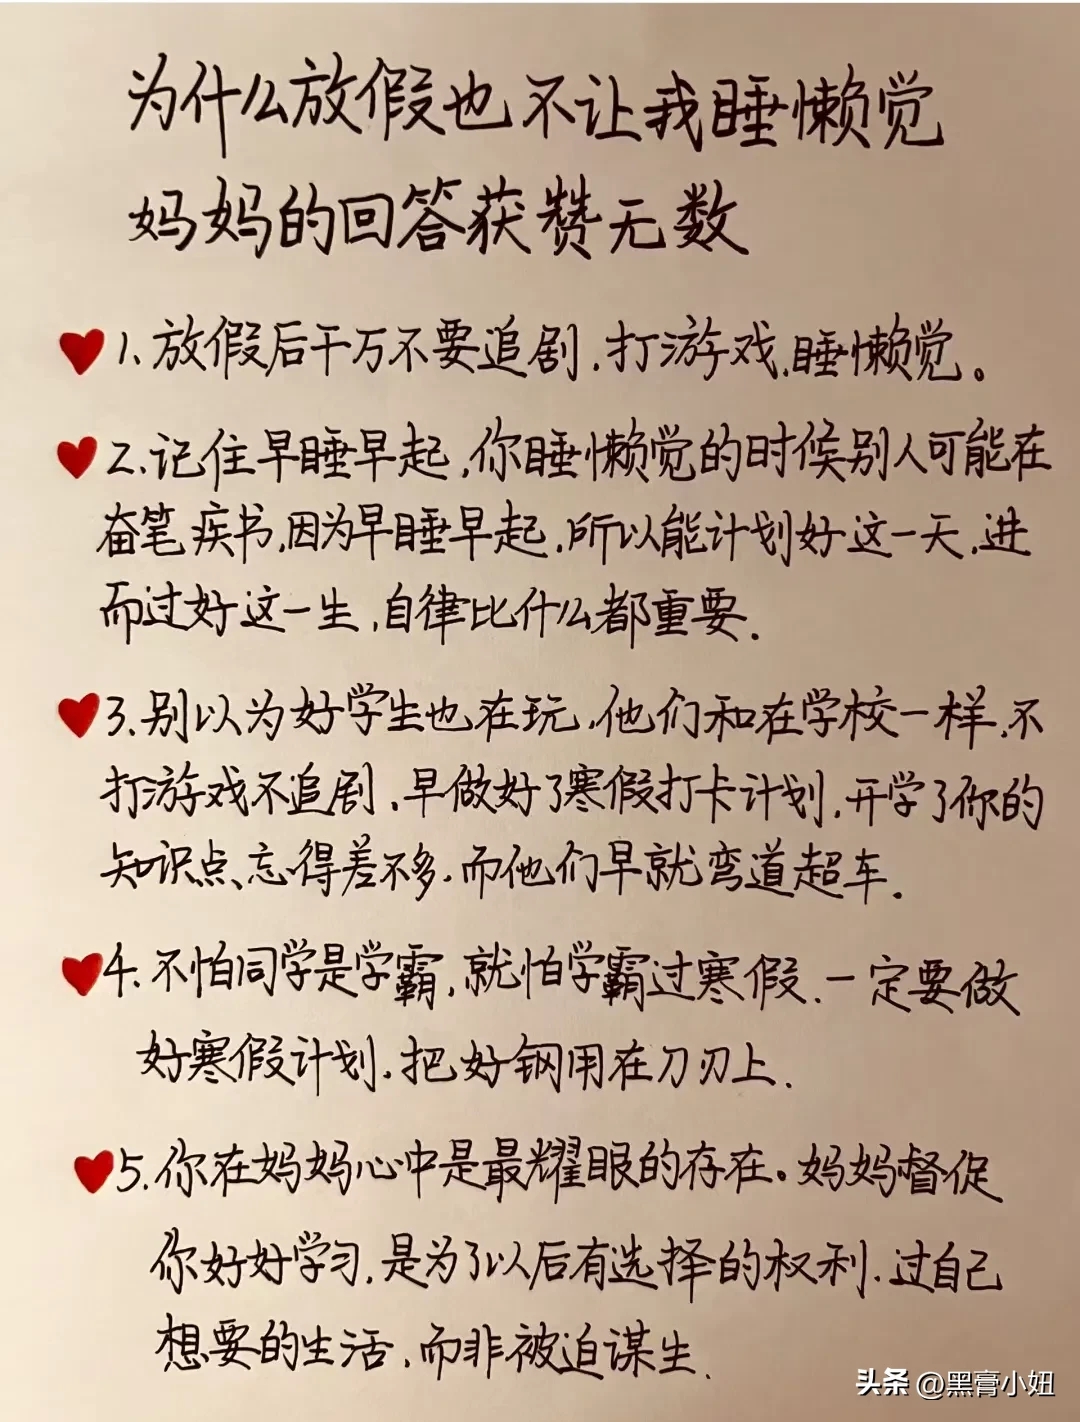 为什么放假也不让我睡懒觉
妈妈的回答获赞无数
1.放假后千万不要追剧.打游戏.睡懒觉。
2.记住早睡早起,你睡懒觉的时候别人可能在
奋笔疾书,因为早睡早起.所以能计划好这一天.进
而过好这一生,自律比什么都重要.
3.别以为好学生也在玩.他们和在学校一样.不
打游戏不追剧.早做好了寒假打卡计划,开学了你的
知识点、忘得差不多.而他们早就弯道超车.
4.不怕同学是学霸,就怕学霸过寒假.一定要做
好寒假计划.把好钢用在刀刃上.
5.你在妈妈心中是最耀眼的存在。妈妈督促
你好好学习,是为了以后有选择的权利.过自己
想要的生活,而非被迫谋生.
头条 @黑膏小妞